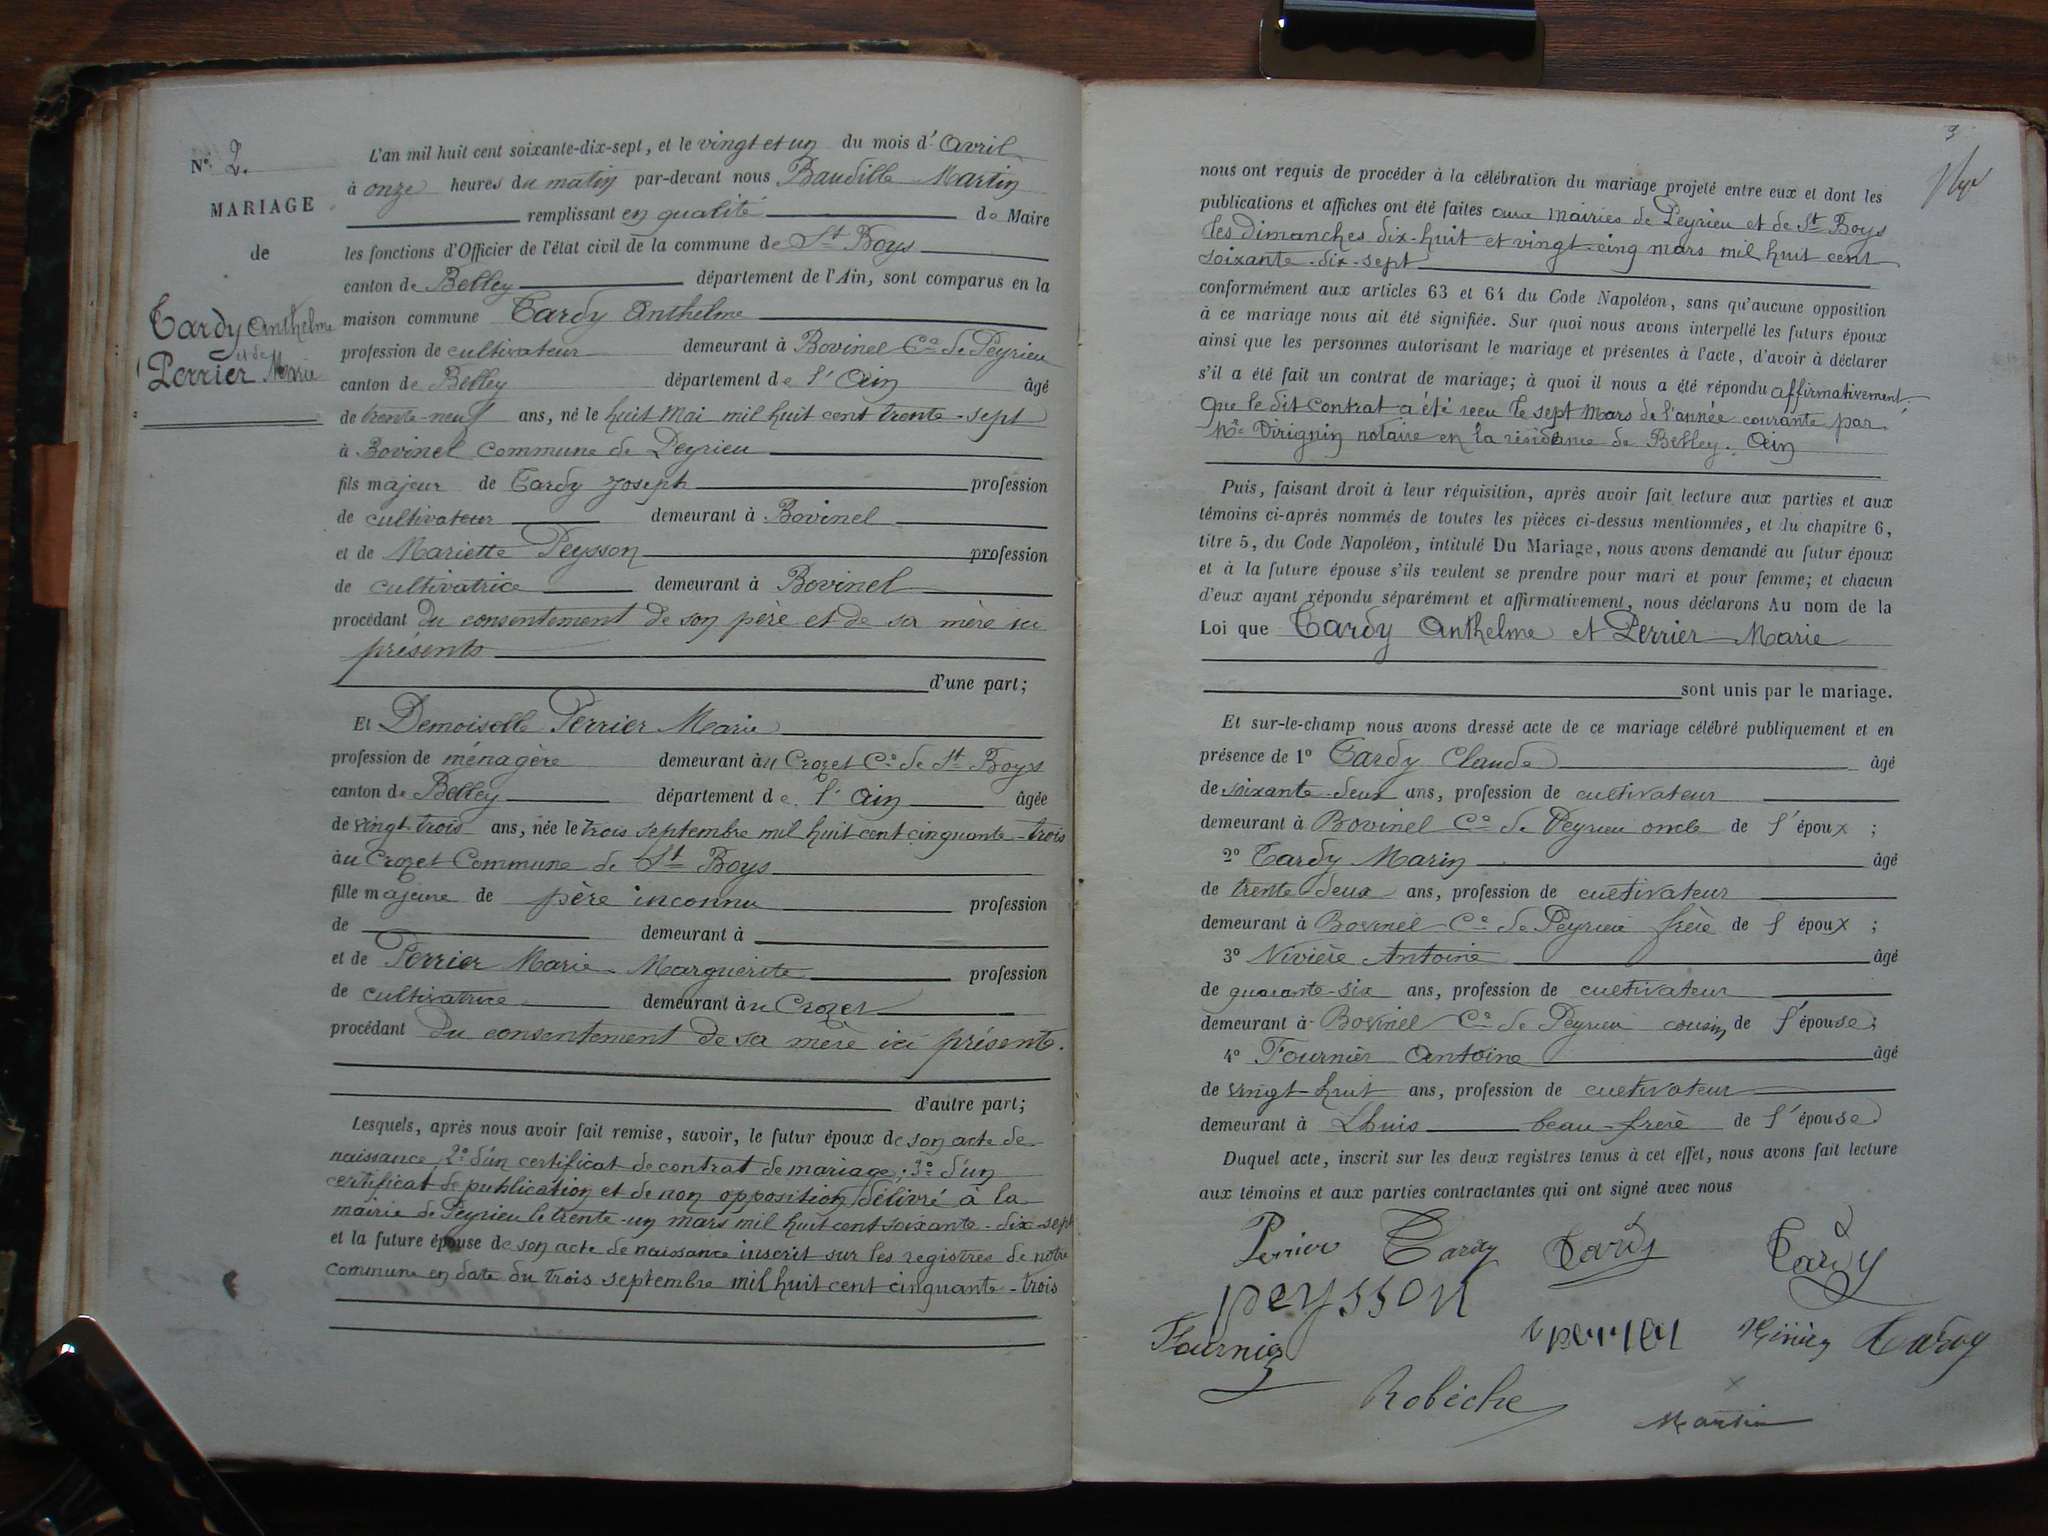 N° 2.
MARIAGE
de
Tardy Anthelme
et de
Perrier Marie
L'an mil huit cent soixante-dix-sept, et le vingt et un du mois d'Avril
à onze heures du matin par-devant nous Baudille Martin
remplissant en qualité de Maire
les fonctions d'Officier de l'état civil de la commune de St Boys
canton de Belley département de l'Ain, sont comparus en la
maison commune Tardy Anthelme
profession de cultivateur demeurant à Bovinel Cne de Peyrieu
canton de Belley département de l'Ain âgé
de trente-neuf ans, né le huit Mai mil huit cent trente-sept
à Bovinel commune de Peyrieu
fils majeur de Tardy Joseph profession
de cultivateur demeurant à Bovinel
et de Mariette Peysson profession
de cultivatrice demeurant à Bovinel
procédant du consentement de son père et de sa mère ici
présents
d'une part;
Et Demoiselle Perrier Marie
profession de ménagère demeurant au Crozet Cne de St Boys
canton de Belley département de l'Ain âgée
de vingt-trois ans, née le trois septembre mil huit cent cinquante-trois
au Crozet Commune de St Boys
fille majeure de père inconnu profession
de demeurant à
et de Perrier Marie Marguerite profession
de cultivatrice demeurant au Crozet
procédant du consentement de sa mère ici présente.
d'autre part;
Lesquels, après nous avoir fait remise, savoir, le futur époux de son acte de
naissance 2° d'un certificat de contrat de mariage; 3° d'un
certificat de publication et de non opposition délivré à la
mairie de Peyrieu le trente-un mars mil huit cent soixante-dix-sept
et la future épouse de son acte de naissance inscrit sur les registres de notre
commune en date du trois septembre mil huit cent cinquante-trois
3
nous ont requis de procéder à la célébration du mariage projeté entre eux et dont les
publications et affiches ont été faites aux mairies de Peyrieu et de St Boys
les dimanches dix-huit et vingt-cinq mars mil huit cent
soixante-dix-sept
conformément aux articles 63 et 64 du Code Napoléon, sans qu'aucune opposition
à ce mariage nous ait été signifiée. Sur quoi nous avons interpellé les futurs époux
ainsi que les personnes autorisant le mariage et présentes à l'acte, d'avoir à déclarer
s'il a été fait un contrat de mariage; à quoi il nous a été répondu affirmativement.
Que le dit contrat a été reçu le sept Mars de l'année courante par
Me Virignin notaire en la résidence de Belley. Ain
Puis, faisant droit à leur réquisition, après avoir fait lecture aux parties et aux
témoins ci-après nommés de toutes les pièces ci-dessus mentionnées, et du chapitre 6,
titre 5, du Code Napoléon, intitulé Du Mariage, nous avons demandé au futur époux
et à la future épouse s'ils veulent se prendre pour mari et pour femme; et chacun
d'eux ayant répondu séparément et affirmativement, nous déclarons Au nom de la
Loi que Tardy Anthelme et Perrier Marie
sont unis par le mariage.
Et sur-le-champ nous avons dressé acte de ce mariage célébré publiquement et en
présence de 1° Tardy Claude âgé
de soixante-deux ans, profession de cultivateur
demeurant à Bovinel Cne de Peyrieu oncle de l'époux ;
2° Tardy Marin âgé
de trente deux ans, profession de cultivateur
demeurant à Bovinel Cne de Peyrieu frère de l'époux ;
3° Nivière Antoine âgé
de quarante-six ans, profession de cultivateur
demeurant à Bovinel Cne de Peyrieu cousin de l'épouse;
4° Fournier Antoine âgé
de vingt-huit ans, profession de cultivateur
demeurant à Lhuis beau-frère de l'épouse
Duquel acte, inscrit sur les deux registres tenus à cet effet, nous avons fait lecture
aux témoins et aux parties contractantes qui ont signé avec nous
Perrier Tardy Tardy Tardy
peysson
Fournier perrier Tardy
Robéche
Martin